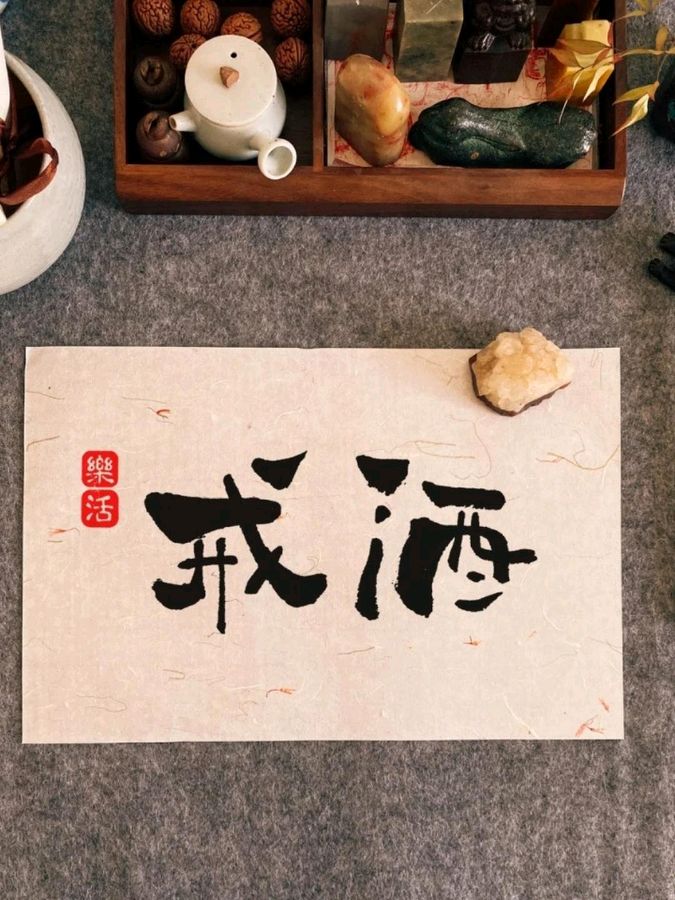 戒酒
樂活